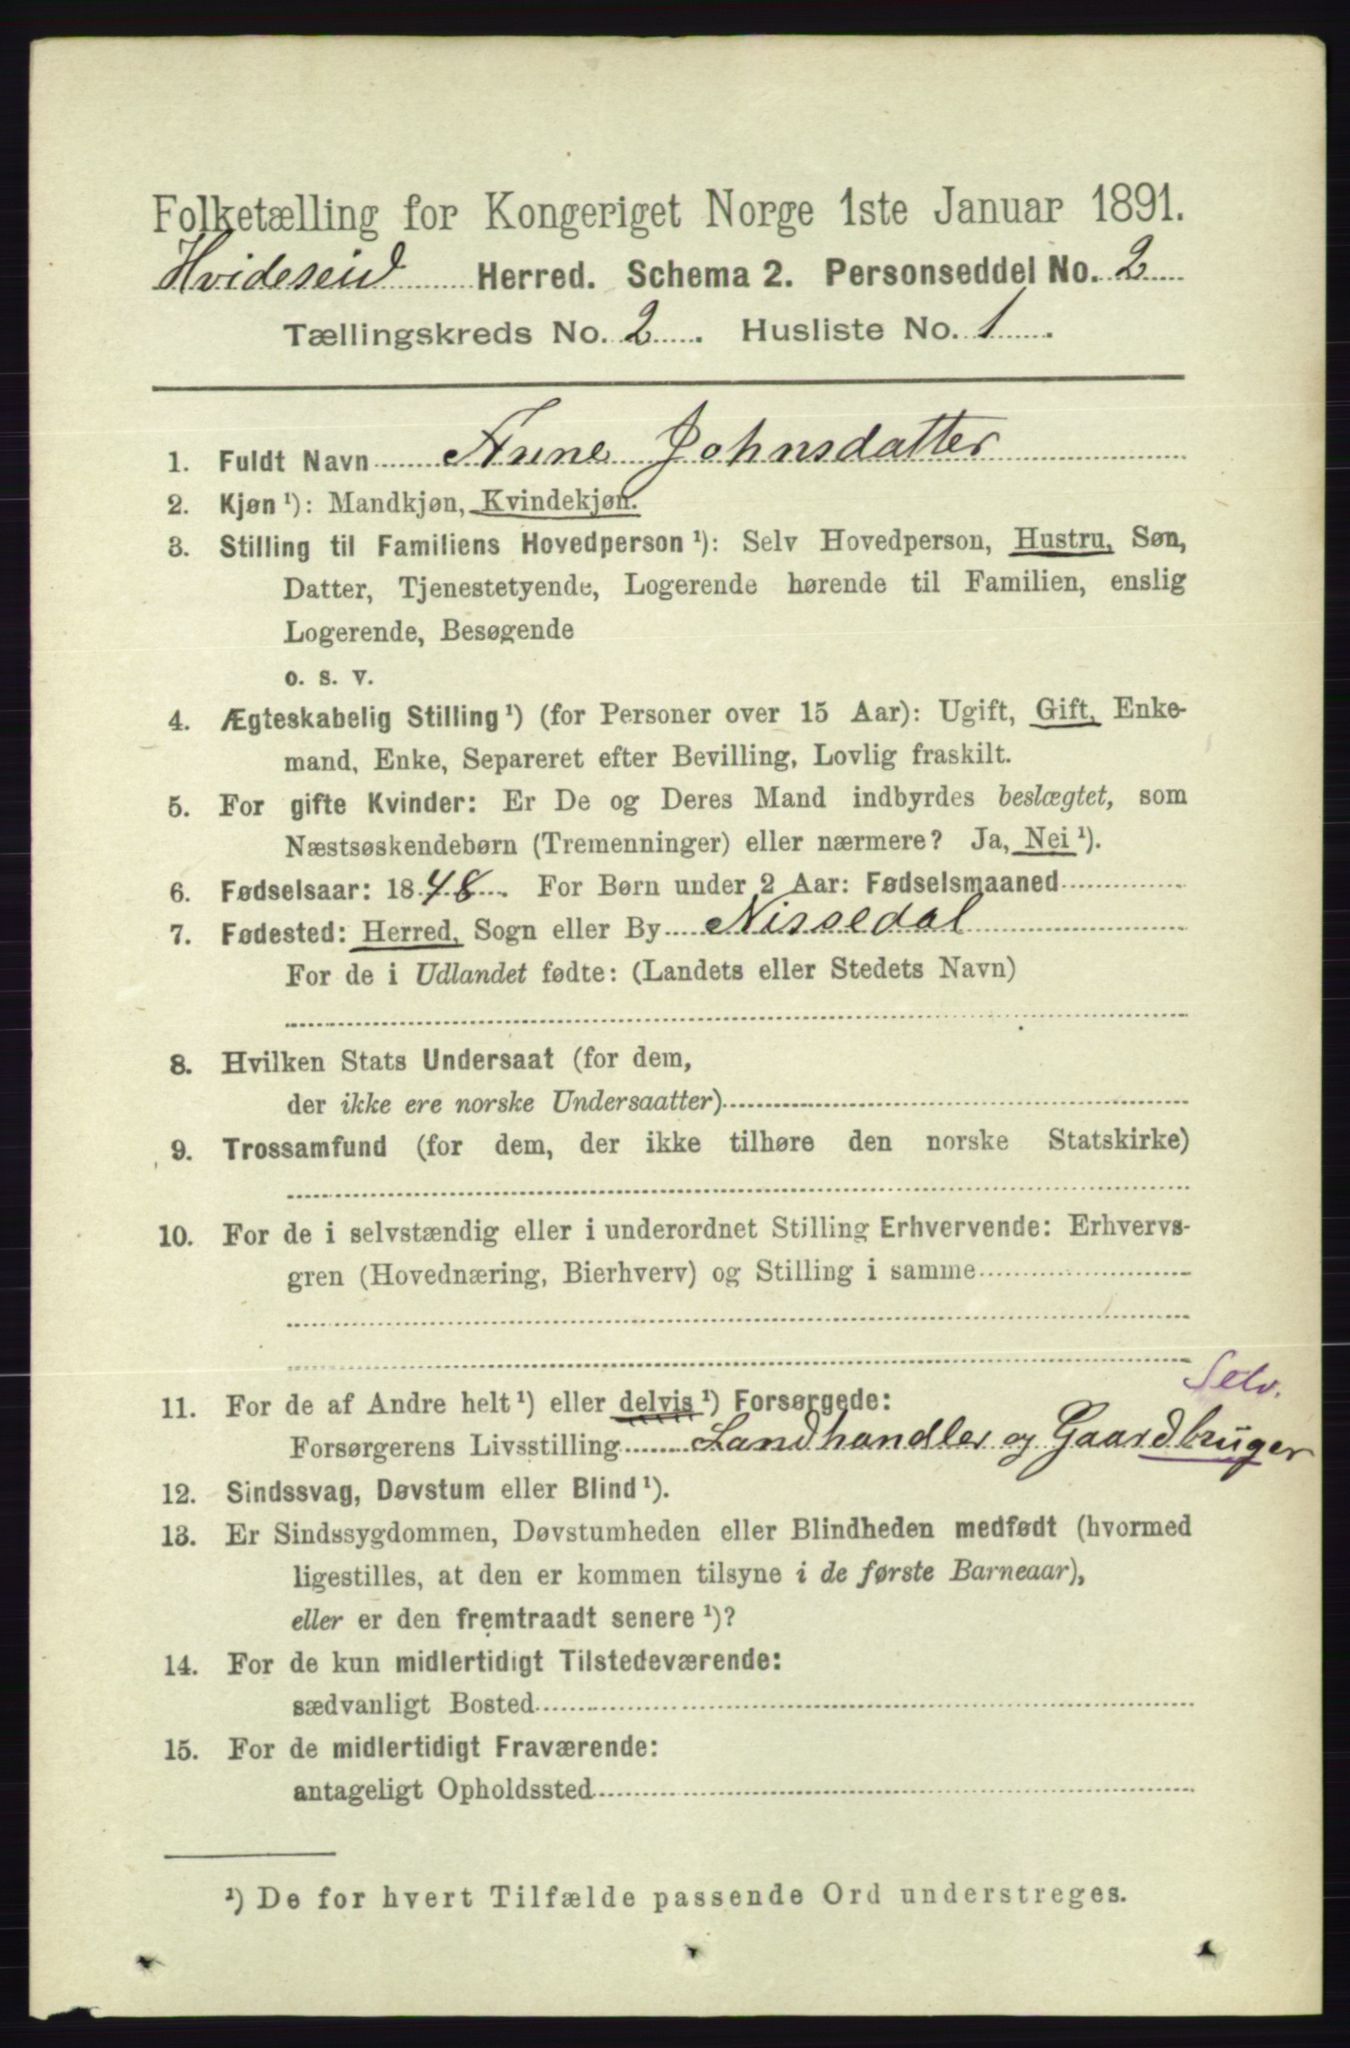 Folketælling for Kongeriget Norge 1ste Januar 1891.
Hvideseid Herred. Schema 2. Personseddel No. 2
Tællingskreds No. 2. Husliste No. 1.
1. Fuldt Navn Anne Johnsdatter
2. Kjøn ¹): Mandkjøn, Kvindekjøn.
3. Stilling til Familiens Hovedperson ¹): Selv Hovedperson, Hustru, Søn,
Datter, Tjenestetyende, Logerende hørende til Familien, enslig
Logerende, Besøgende
o. s. v.
4. Ægteskabelig Stilling ¹) (for Personer over 15 Aar): Ugift, Gift, Enke-
mand, Enke, Separeret efter Bevilling, Lovlig fraskilt.
5. For gifte Kvinder: Er De og Deres Mand indbyrdes beslægtet, som
Næstsøskendebørn (Tremenninger) eller nærmere? Ja, Nei ¹).
6. Fødselsaar: 1848. For Børn under 2 Aar: Fødselsmaaned
7. Fødested: Herred, Sogn eller By Nissedal
For de i Udlandet fødte: (Landets eller Stedets Navn)
8. Hvilken Stats Undersaat (for dem,
der ikke ere norske Undersaatter)
9. Trossamfund (for dem, der ikke tilhøre den norske Statskirke)
10. For de i selvstændig eller i underordnet Stilling Erhvervende: Erhvervs-
gren (Hovednæring, Bierhverv) og Stilling i samme
Selv.
11. For de af Andre helt ¹) eller delvis ¹) Forsørgede:
Forsørgerens Livsstilling Landhandler og Gaardbruger
12. Sindssvag, Døvstum eller Blind ¹).
13. Er Sindssygdommen, Døvstumheden eller Blindheden medfødt (hvormed
ligestilles, at den er kommen tilsyne i de første Barneaar),
eller er den fremtraadt senere ¹)?
14. For de kun midlertidigt Tilstedeværende:
sædvanligt Bosted
15. For de midlertidigt Fraværende:
antageligt Opholdssted
¹) De for hvert Tilfælde passende Ord understreges.